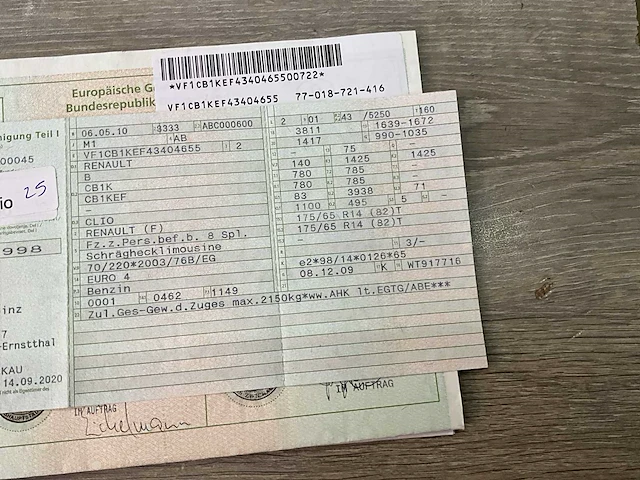 *VF1CB1KEF4340465500722*
VF1CB1KEF43404655 77-018-721-416
Europäische G
Bundesrepublik
nigung Teil I
00045
io 25
998
inz
7
-Ernstthal
KAU
14.09.2020
06.05.10 3333 ABC000600
M1 AB
VF1CB1KEF43404655 2
RENAULT
B
CB1K
CB1KEF
–
CLIO
RENAULT (F)
Fz.z.Pers.bef.b. 8 Spl.
Schräghecklimousine
70/220*2003/76B/EG
EURO 4
Benzin
0001 0462 1149
Zul.Ges-Gew.d.Zuges max.2150kg*ww.AHK lt.EGTG/ABE***
2 01 43 /5250 160
3811 1639-1672
1417 990-1035
– 75 –
140 1425 1425
780 785 –
780 785 –
83 3938 71
1100 495 5 –
175/65 R14 (82)T
175/65 R14 (82)T
–
– 3/–
e2*98/14*0126*65
08.12.09 K WT917716
IM AUFTRAG
IM AUFTRAG